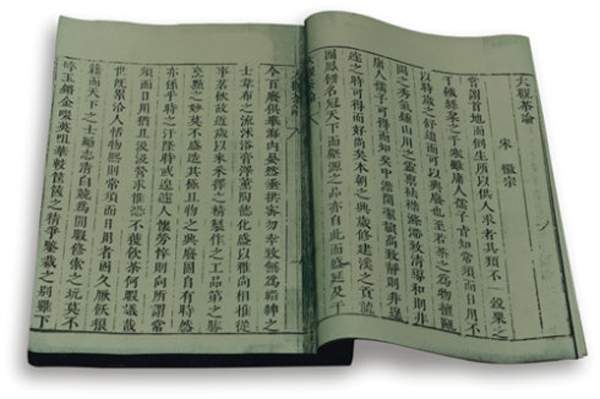 大觀茶論
宋 徽宗
嘗謂首地而倒生所以供人求者其類不一穀粟之
于饑絲枲之于寒雖庸人孺子皆知常須而日用不
以時歲之舒迫而可以興廢也至若茶之為物擅甌
閩之秀氣鍾山川之靈稟祛襟滌滯致清導和則非
庸人孺子可得而知矣中澹閒潔韻高致靜則非遑
遽之時可得而好尚矣本朝之興歲修建溪之貢龍
團鳳餅名冠天下而壑源之品亦自此而盛延及于
大觀茶論
今百廢俱舉海內晏然垂拱密勿幸致無為縉紳之
士韋布之流沐浴膏澤薰陶德化盛以雅尚相推從
事茗飲故近歲以來采擇之精製作之工品第之勝
烹點之妙莫不盛造其極且物之興廢固自有時然
亦係乎時之汙隆時或遑遽人懷勞悴則向所謂常
須而日用猶且汲汲營求惟恐不獲飲茶何暇議哉
世既累洽人恬物熙則常須而日用者固久厭飫狼
籍而天下之士勵志清白競為閒暇修索之玩莫不
碎玉鏘金啜英咀華較筐篋之精爭鑒裁之別雖下